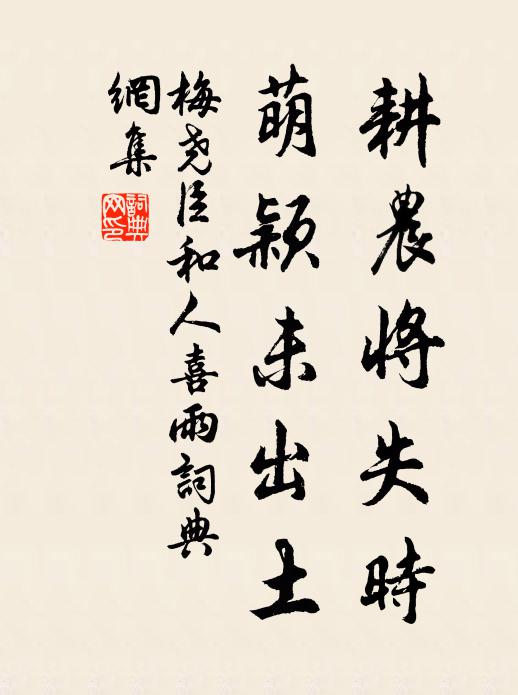 耕農將失時
萌穎未出土
梅尧臣和人喜雨詞典
網集
詞典网印